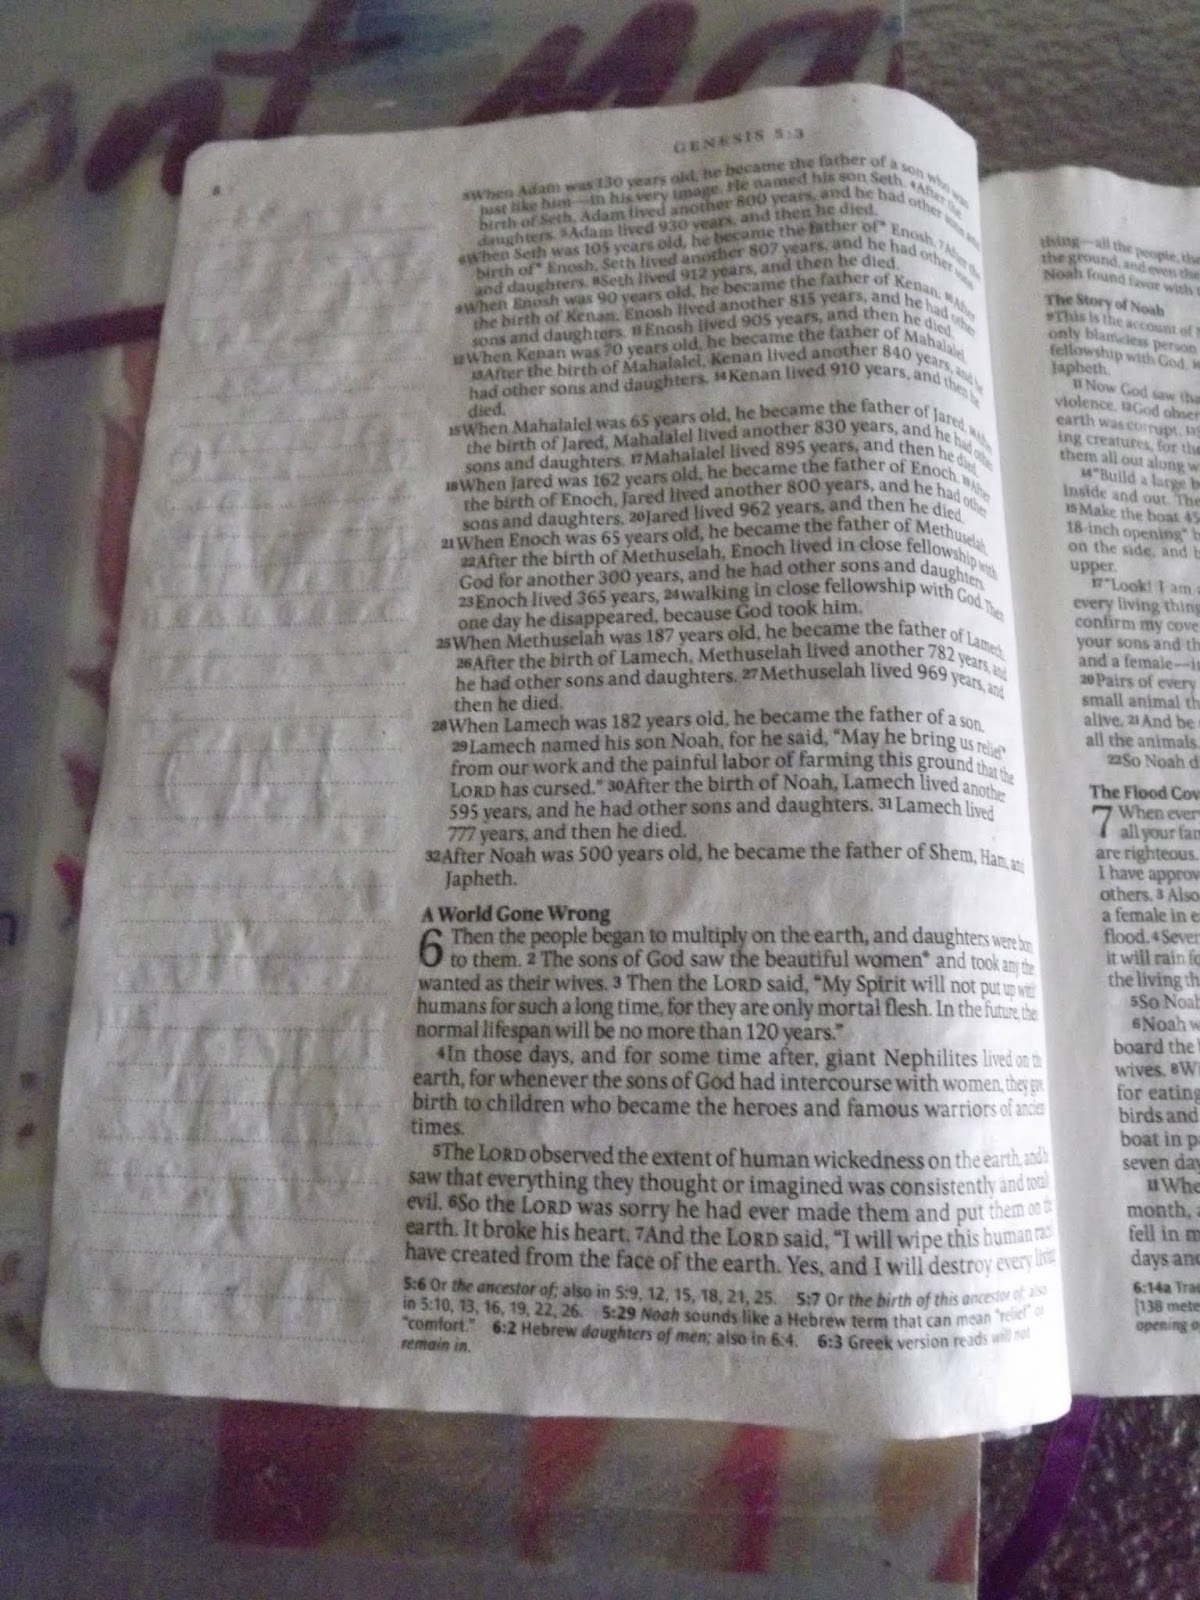 ant ma
8
GENESIS 5:3
3When Adam was 130 years old, he became the father of a son who was
just like him—in his very image. He named his son Seth. 4After the
birth of Seth, Adam lived another 800 years, and he had other sons and
daughters. 5Adam lived 930 years, and then he died.
6When Seth was 105 years old, he became the father of* Enosh. 7After the
birth of* Enosh, Seth lived another 807 years, and he had other sons
and daughters. 8Seth lived 912 years, and then he died.
9When Enosh was 90 years old, he became the father of Kenan. 10After
the birth of Kenan, Enosh lived another 815 years, and he had other
sons and daughters. 11Enosh lived 905 years, and then he died.
12When Kenan was 70 years old, he became the father of Mahalalel.
13After the birth of Mahalalel, Kenan lived another 840 years, and he
had other sons and daughters. 14Kenan lived 910 years, and then he
died.
15When Mahalalel was 65 years old, he became the father of Jared. 16After
the birth of Jared, Mahalalel lived another 830 years, and he had other
sons and daughters. 17Mahalalel lived 895 years, and then he died.
18When Jared was 162 years old, he became the father of Enoch. 19After
the birth of Enoch, Jared lived another 800 years, and he had other
sons and daughters. 20Jared lived 962 years, and then he died.
21When Enoch was 65 years old, he became the father of Methuselah.
22After the birth of Methuselah, Enoch lived in close fellowship with
God for another 300 years, and he had other sons and daughters.
23Enoch lived 365 years, 24walking in close fellowship with God. Then
one day he disappeared, because God took him.
25When Methuselah was 187 years old, he became the father of Lamech.
26After the birth of Lamech, Methuselah lived another 782 years, and
he had other sons and daughters. 27Methuselah lived 969 years, and
then he died.
28When Lamech was 182 years old, he became the father of a son.
29Lamech named his son Noah, for he said, "May he bring us relief*
from our work and the painful labor of farming this ground that the
LORD has cursed." 30After the birth of Noah, Lamech lived another
595 years, and he had other sons and daughters. 31Lamech lived
777 years, and then he died.
32After Noah was 500 years old, he became the father of Shem, Ham, and
Japheth.
A World Gone Wrong
6 Then the people began to multiply on the earth, and daughters were born
to them. 2 The sons of God saw the beautiful women* and took any the
wanted as their wives. 3 Then the LORD said, "My Spirit will not put up with
humans for such a long time, for they are only mortal flesh. In the future, the
normal lifespan will be no more than 120 years."
4In those days, and for some time after, giant Nephilites lived on th
earth, for whenever the sons of God had intercourse with women, they gav
birth to children who became the heroes and famous warriors of ancien
times.
5The LORD observed the extent of human wickedness on the earth, and h
saw that everything they thought or imagined was consistently and totall
evil. 6So the LORD was sorry he had ever made them and put them on th
earth. It broke his heart. 7And the LORD said, "I will wipe this human rac
have created from the face of the earth. Yes, and I will destroy every living
5:6 Or the ancestor of; also in 5:9, 12, 15, 18, 21, 25. 5:7 Or the birth of this ancestor of; also
in 5:10, 13, 16, 19, 22, 26. 5:29 Noah sounds like a Hebrew term that can mean "relief" or
"comfort." 6:2 Hebrew daughters of men; also in 6:4. 6:3 Greek version reads will not
remain in.
thing—all the people, the
the ground, and even the
Noah found favor with
The Story of Noah
9This is the account of
only blameless person
fellowship with God.
Japheth.
11Now God saw tha
violence. 12God obser
earth was corrupt.
ing creatures, for the
them all out along w
14"Build a large b
inside and out. The
15Make the boat 45
18-inch opening* b
on the side, and b
upper.
17"Look! I am
every living thing
confirm my cove
your sons and th
and a female—i
20Pairs of every
small animal th
alive. 21And be
all the animals
22So Noah d
The Flood Cov
7 When ever
all your fam
are righteous.
I have approv
others. 3 Also
a female in e
flood. 4 Seven
it will rain fo
the living th
5So Noah
6Noah w
board the
wives. 8Wi
for eating
birds and
boat in p
seven day
11Whe
month,
fell in m
days and
6:14a Trad
[138 mete
opening o